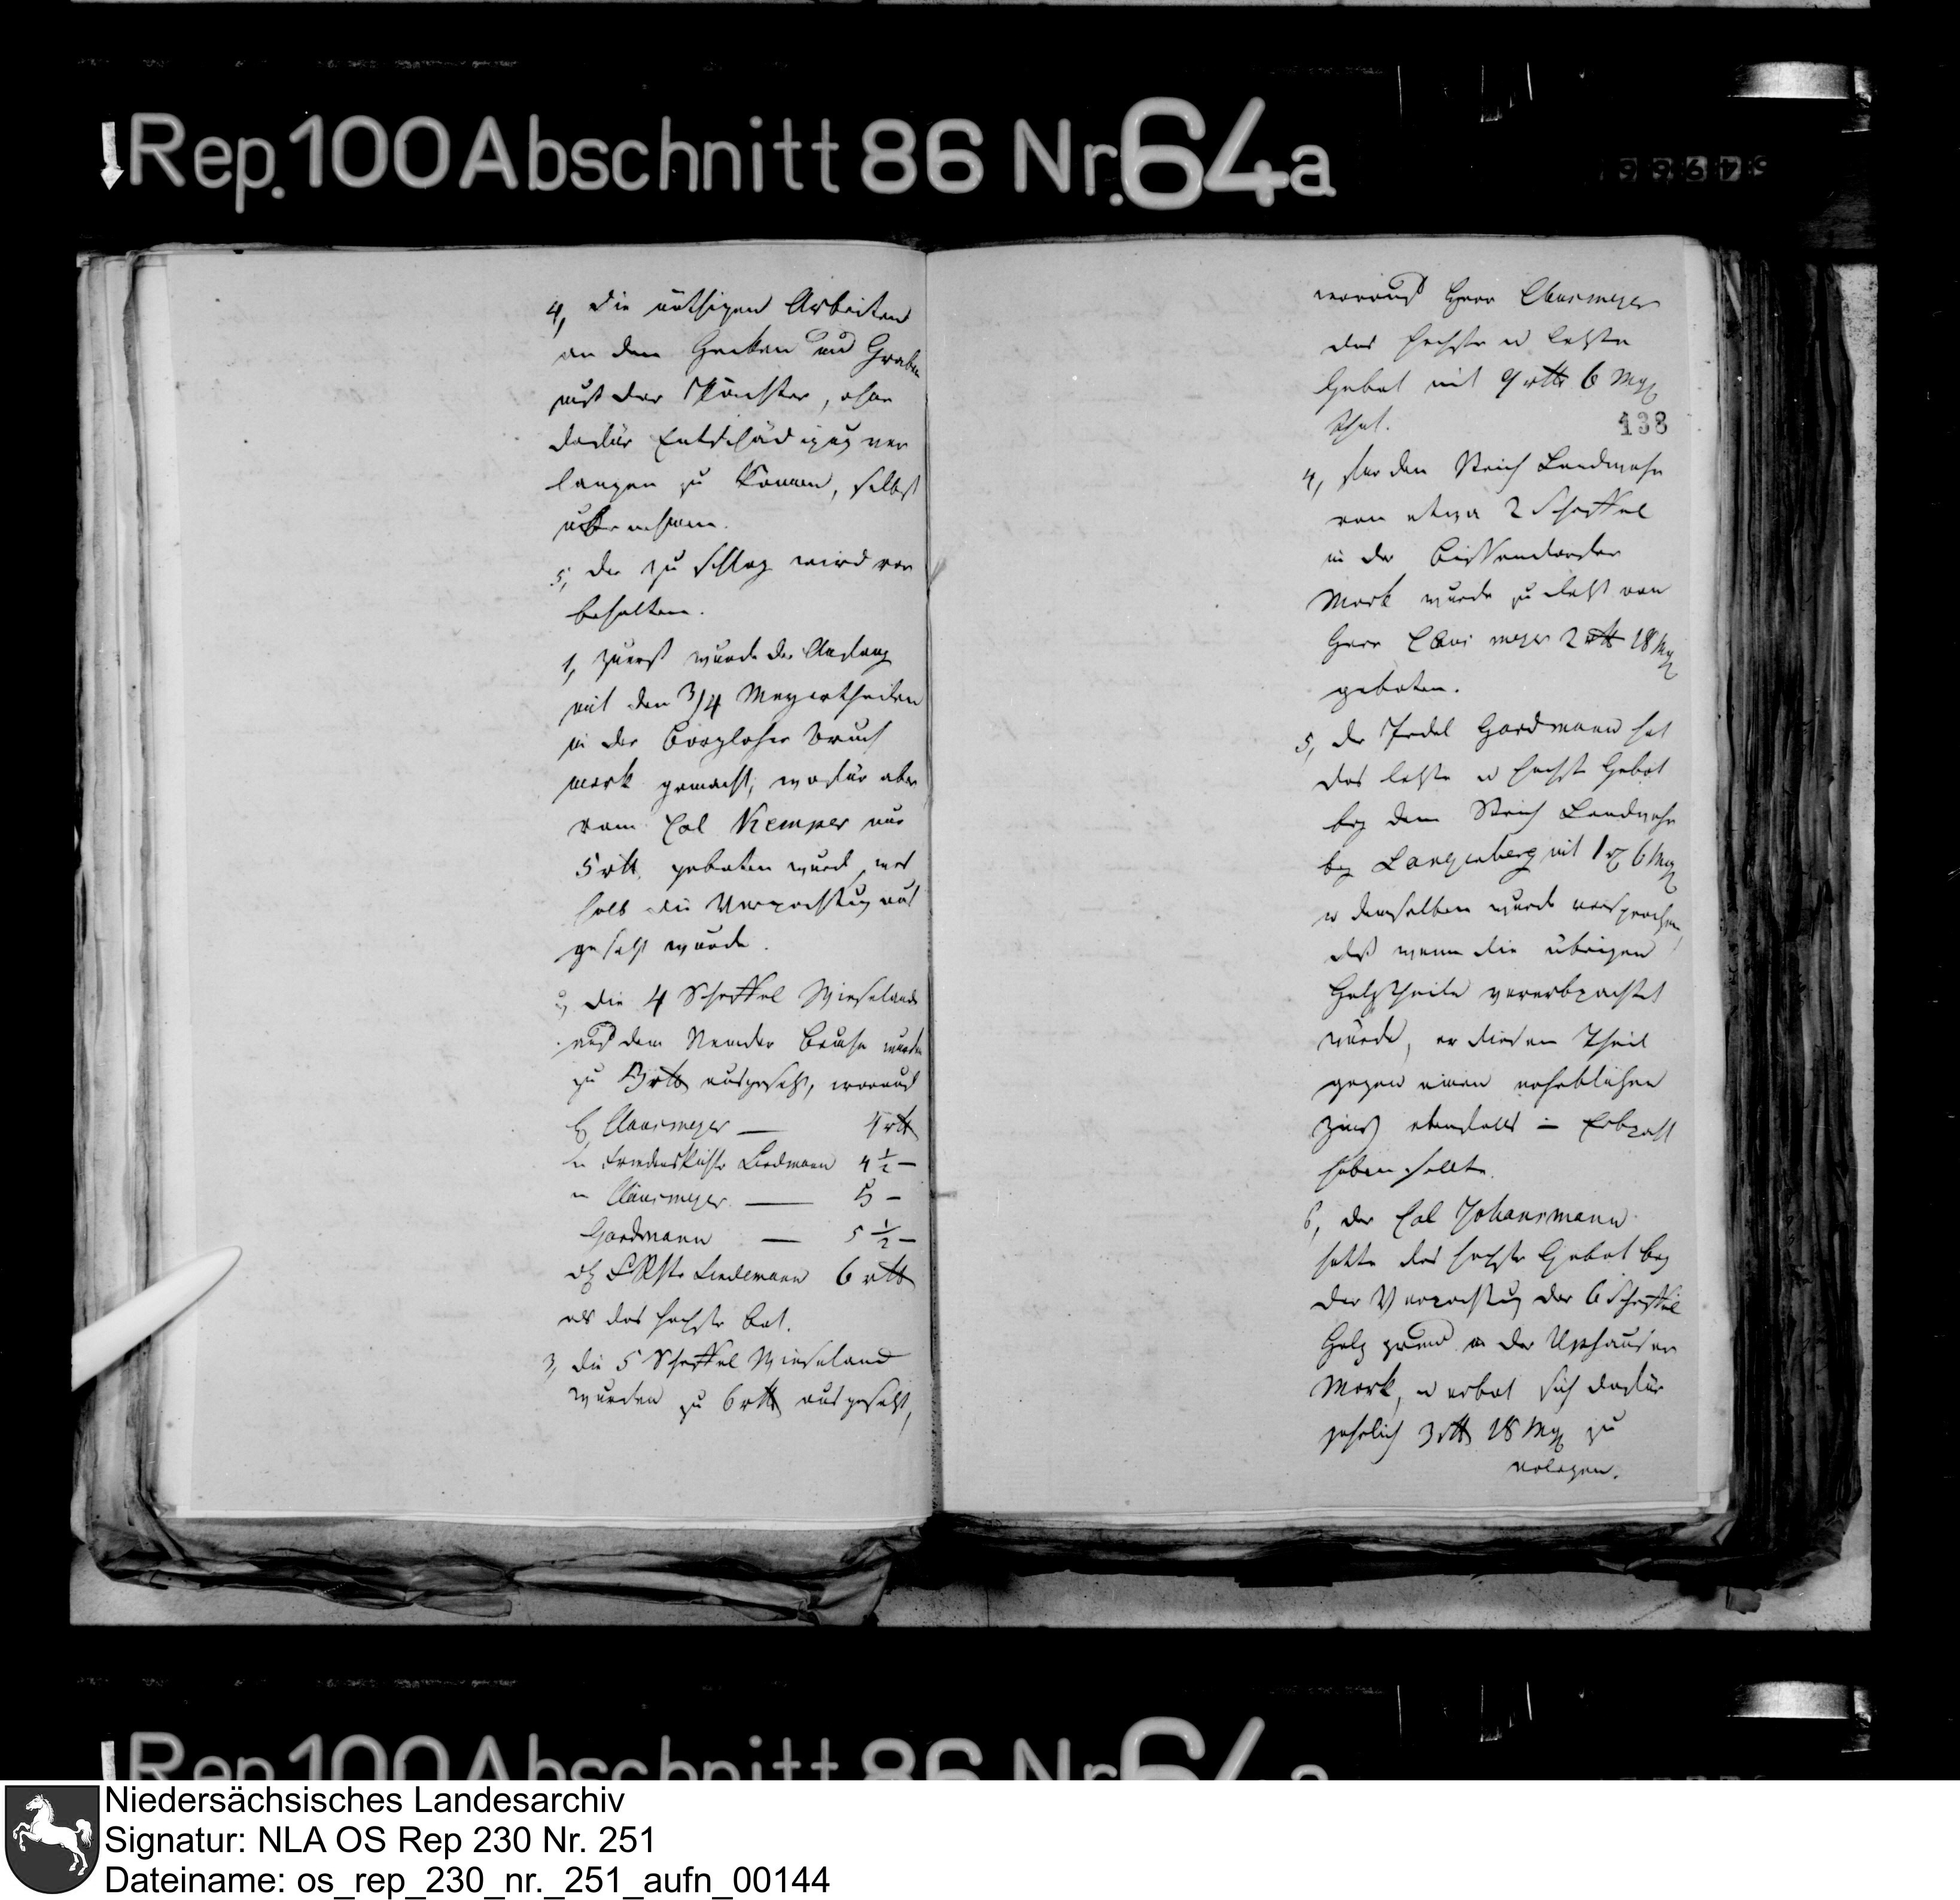 Rep. 100 Abschnitt 86 Nr. 64a
4, die nöthigen Arbeiten
an den Hecken und Graben
muß der Pächter, ohne
dafür Entschädigung ver
langen zu können, selbst
übernehmen.
5, der Zuschlag wird vor
behalten.
1, Zuerst wurde der Anfang
mit den 3/4 Meyertheilen
in der Borgloher Bruch
mark gemacht, wofür aber
vom Col Kemper nur
5 rtt. geboten wurd, wes
halb die Verpachtung aus
gesetzt wurde.
2, die 4 Scheffel Wieseland
auf dem Nemder Bruche wurden
zu 3 rtt ausgesetzt, worauf
H Clausmeyer — 4 rtt
Lindemann 4 1/2 —
Clausmeyer — 5 —
Hardmann — 5 1/2 —
Lindemann 6 rtt
als das höchste bot.
3, die 5 Scheffel Wieseland
wurden zu 6 rtt ausgesetzt,
worauf Herr Clausmeyer
das höchste u letzte
Gebot mit 9 rtt 6 Mg
that.
138
4, für den Strich Landwehr
von etwa 2 Scheffel
in der Bissendorfer
Mark wurde zuletzt von
Herr Clausmeyer 2 rtt 18 Mg
geboten.
5, der Pedel Hardmann hat
das letzte u höchste Gebot
bey dem Strich Landwehr
bey Langenberg mit 1 r 6 Mg
u demselben wurde versprochen,
daß wenn die übrigen
Holztheile vererbpachtet
würde, er diesen Theil
gegen einen erheblichen
Zins ebenfalls in Erbpacht
haben sollte.
6, der Col Johansmann
hatte das höchste Gebot bey
der Verpachtung der 6 Scheffel
Holzgrund in der Uphauser
Mark, u erbot sich dafür
jehrlich 3 rtt 18 Mg zu
erlegen.
Rep. 100 Abschnitt 86 Nr. 64a
Niedersächsisches Landesarchiv
Signatur: NLA OS Rep 230 Nr. 251
Dateiname: os_rep_230_nr._251_aufn_00144